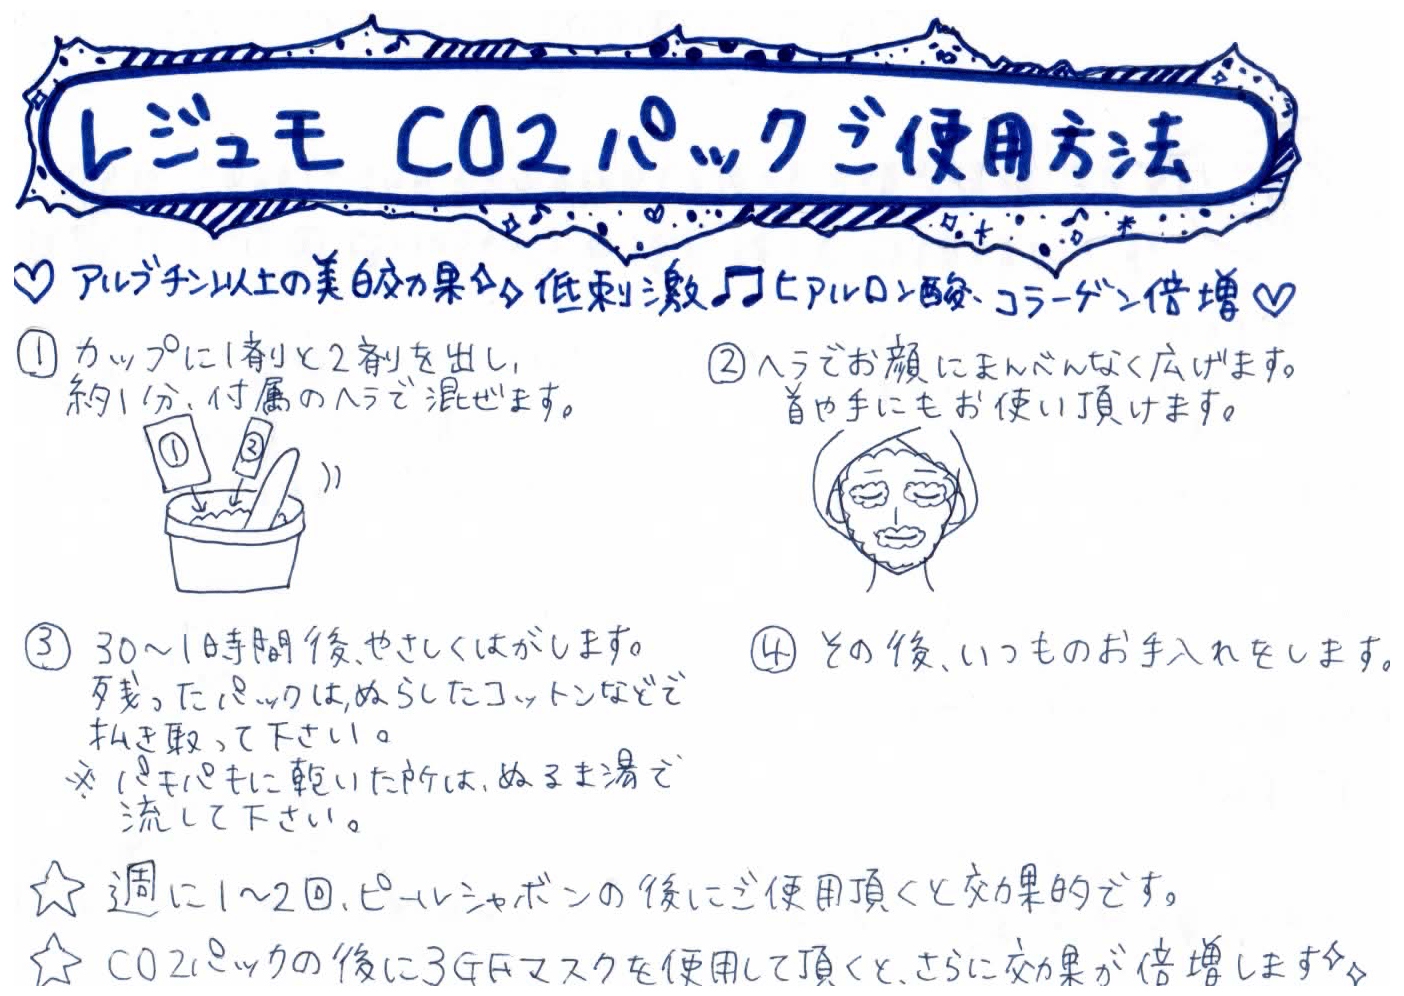 レジュモ CO2パックご使用方法
♡アルブチン以上の美白効果✧✧低刺激♫ヒアルロン酸、コラーゲン倍増♡
① カップに1剤と2剤を出し、
約1分、付属のヘラで混ぜます。
① ②
② ヘラでお顔にまんべんなく広げます。
首や手にもお使い頂けます。
③ 30〜1時間後、やさしくはがします。
残ったパックは、ぬらしたコットンなどで
払き取って下さい。
※ パキパキに乾いた所は、ぬるま湯で
流して下さい。
④ その後、いつものお手入れをします。
☆ 週に1〜2回、ピールシャボンの後にご使用頂くと効果的です。
☆ CO2パックの後に3GFマスクを使用して頂くと、さらに効果が倍増します✧✧